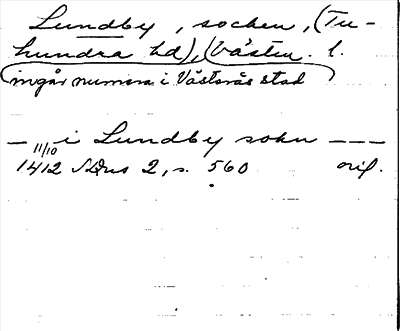 Lundby, socken, (Tu-
hundra hd), (Västm. l.
ingår numera i Västerås stad
— i Lundby sokn — — —
11/10
1412 SDns 2, s. 560 orig.